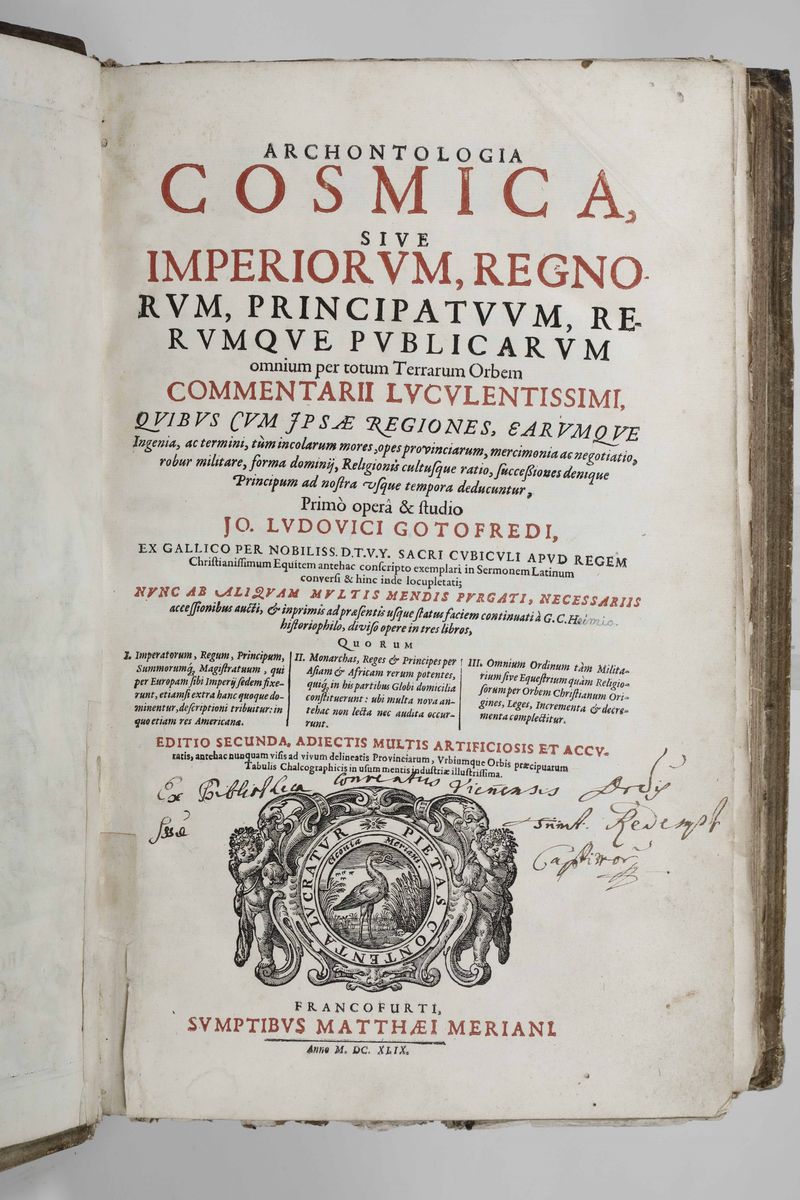 ARCHONTOLOGIA
COSMICA,
SIVE
IMPERIORVM, REGNO-
RVM, PRINCIPATVVM, RE-
RVMQVE PVBLICARVM
omnium per totum Terrarum Orbem
COMMENTARII LVCVLENTISSIMI,
QVIBVS CVM IPSÆ REGIONES, EARVMQVE
Ingenia, ac termini, tùm incolarum mores, opes provinciarum, mercimonia ac negotiatio,
robur militare, forma dominij, Religionis cultusque ratio, successiones denique
Principum ad nostra vsque tempora deducuntur,
Primò operâ & studio
JO. LVDOVICI GOTOFREDI,
EX GALLICO PER NOBILISS. D.T.V.Y. SACRI CVBICVLI APVD REGEM
Christianissimum Equitem antehac conscripto exemplari in Sermonem Latinum
conversi & hinc inde locupletati;
NVNC AB ALIQVAM MVLTIS MENDIS PVRGATI, NECESSARIIS
accessionibus aucti, & inprimis ad præsentis usque status faciem continuati à G.C.Heimio.
historiophilo, diviso opere in tres libros,
QUORUM
I. Imperatorum, Regum, Principum,
Summorumq́, Magistratuum, qui
per Europam sibi Imperij sedem fixe-
runt, etiamsi extra hanc quoque do-
minentur, descriptioni tribuitur: in
quo etiam res Americana.
II. Monarchas, Reges & Principes per
Asiam & Africam rerum potentes,
quiq́, in his partibus Globi domicilia
constituerunt: ubi multa nova an-
tehac non lecta nec audita occur-
runt.
III. Omnium Ordinum tàm Milita-
rium sive Equestrium quàm Religio-
sorum per Orbem Christianum Ori-
gines, Leges, Incrementa & decre-
menta complectitur.
EDITIO SECUNDA, ADIECTIS MULTIS ARTIFICIOSIS ET ACCV-
ratis, antehac nunquam visis ad vivum delineatis Provinciarum, Vrbiumque Orbis præcipuarum
Tabulis Chalcographicis in usum mentis industriæ illustrissima.
Ex Bibliotheca Conventus Vienensis Ordis
Ssae Redempt
Captivor
PIETAS CONTENTA LUCRATUR
Ciconia Meriana
FRANCOFURTI,
SVMPTIBVS MATTHÆI MERIANI.
Anno M. DC. XLIX.